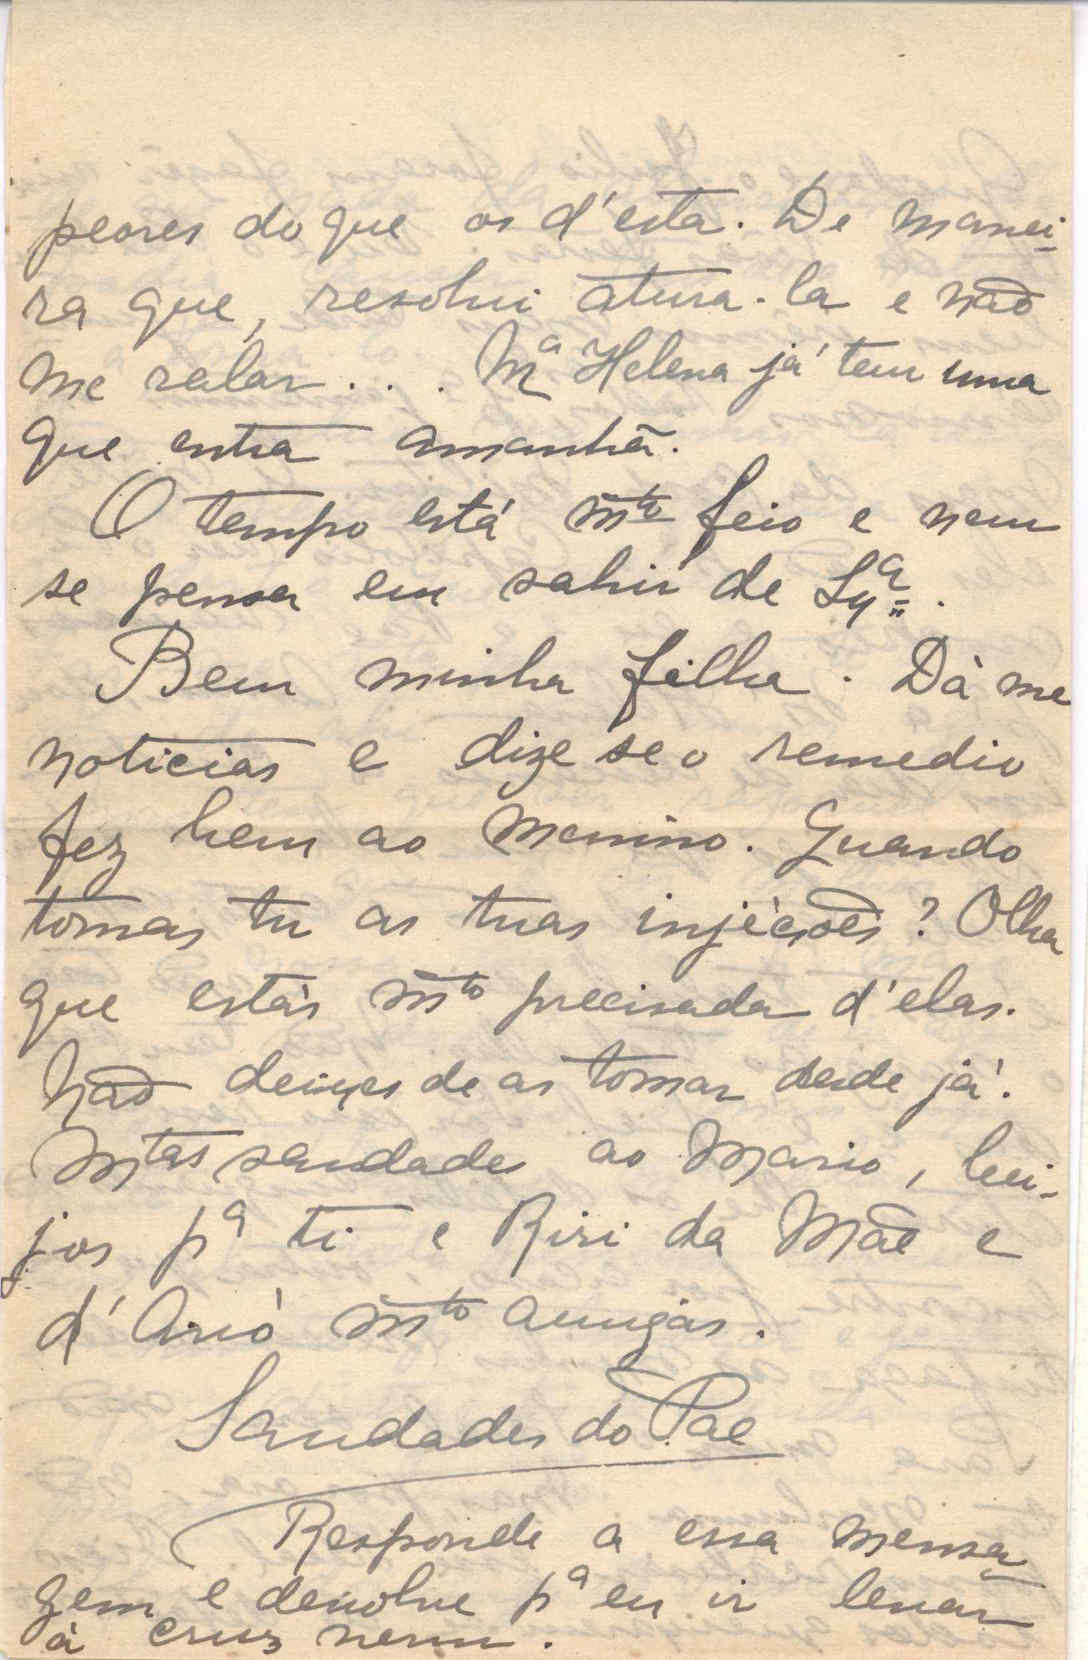 peores do que os d'esta. De manei-
ra que, resolvi atura-la e não
me ralar.... Mª Helena já tem uma
que entra amanhã.
O tempo está m̃to feio e nem
se pensa em sahir de Lxª.
Bem minha filha. Dà me
noticias e dize se o remedio
fez bem ao menino. Quando
tomas tu as tuas injècções? Olha
que estàs m̃to precisada d'elas.
Não deixes de as tomar desde já.
Mtas saudades ao Mario, bei-
jos pª ti e Riri da Mãe e
d'Avó m̃to amigas.
Saudades do Pae
Responde a essa mensa-
gem e devolve pª eu ir levar
à cruz verm.